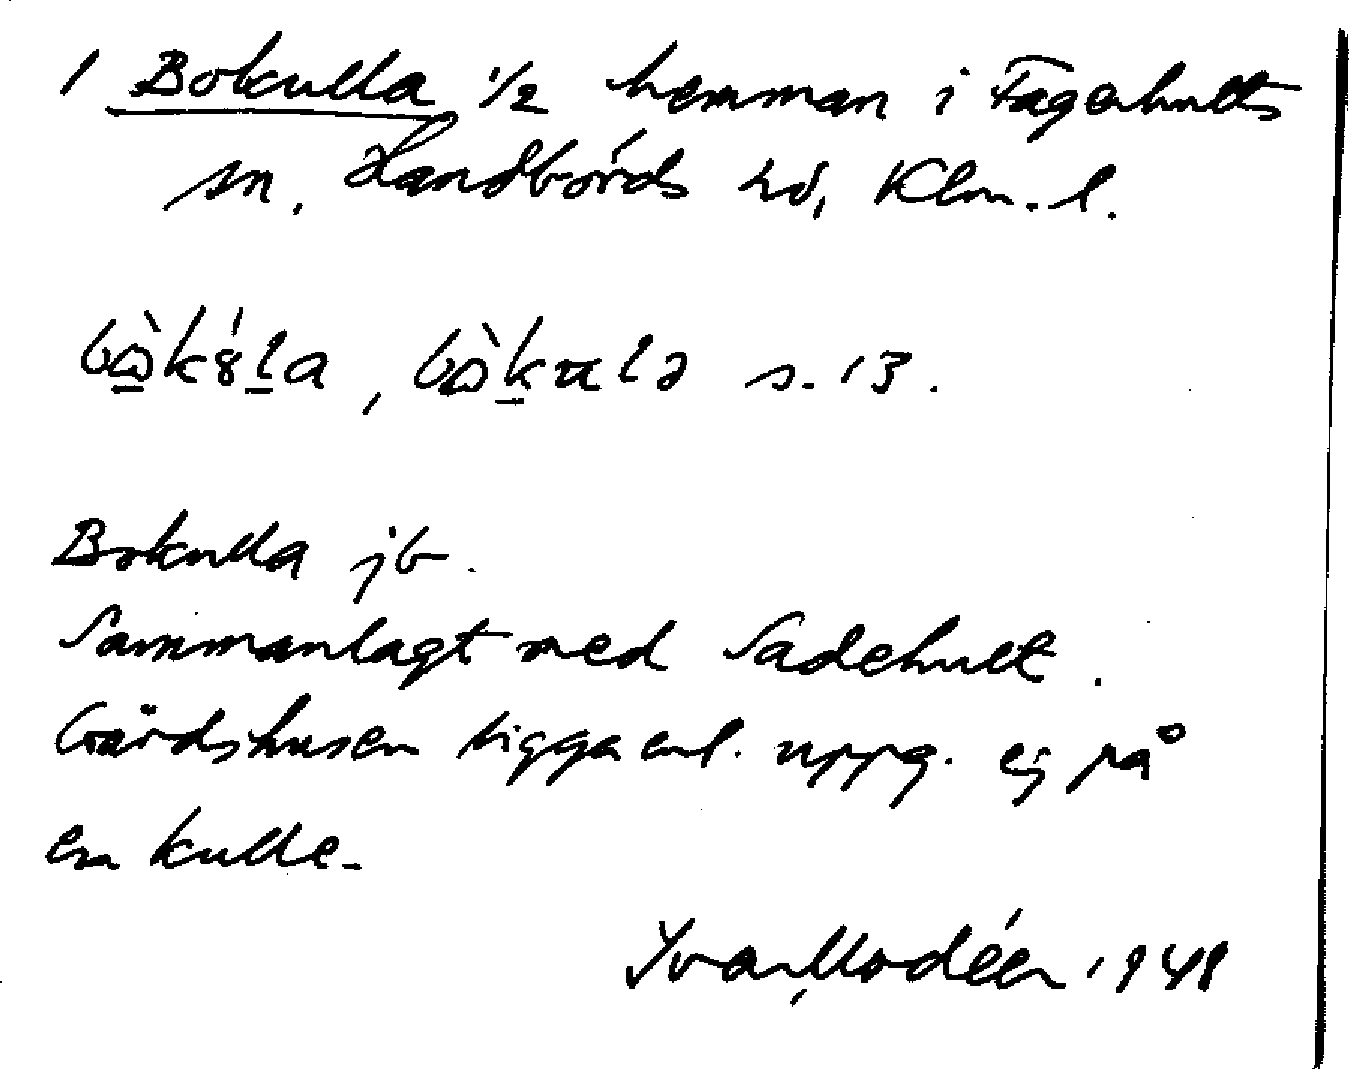 1 Bokulla 1/2 hemman i Fagerhults
sn. Handbörds hd, Klm. l.
s. 13.
Bokulla jb.
Sammanlagt med Sadehult.
Gårdshusen ligga enl. uppg. ej på
en kulle.
Ivar Modéer 1941